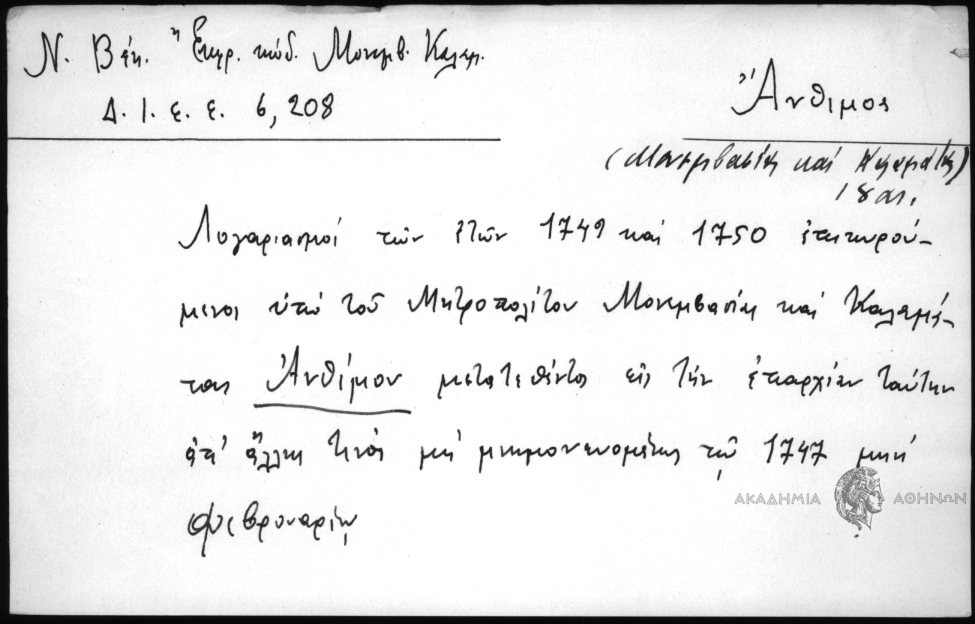 Ν. Βέη. Ἐκφρ. κώδ. Μονεμβ. Καλαμ.
Δ. Ι. Ε. Ε. 6, 208
Ἄνθιμος
(Μονεμβασίας καὶ Καλαμάτας)
18 αι.
Λογαριασμοί τῶν ἐτῶν 1749 καὶ 1750 ἐπικυρού-
μενοι ὑπὸ τοῦ Μητροπολίτου Μονεμβασίας καὶ Καλαμά-
τας Ἀνθίμου μετατεθέντος εἰς τὴν ἐπαρχίαν ταύτην
ἀπ' ἄλλης τινός μὴ μνημονευομένης τῷ 1747 μηνὶ
Φεβρουαρίῳ
ΑΚΑΔΗΜΙΑ ΑΘΗΝΩΝ